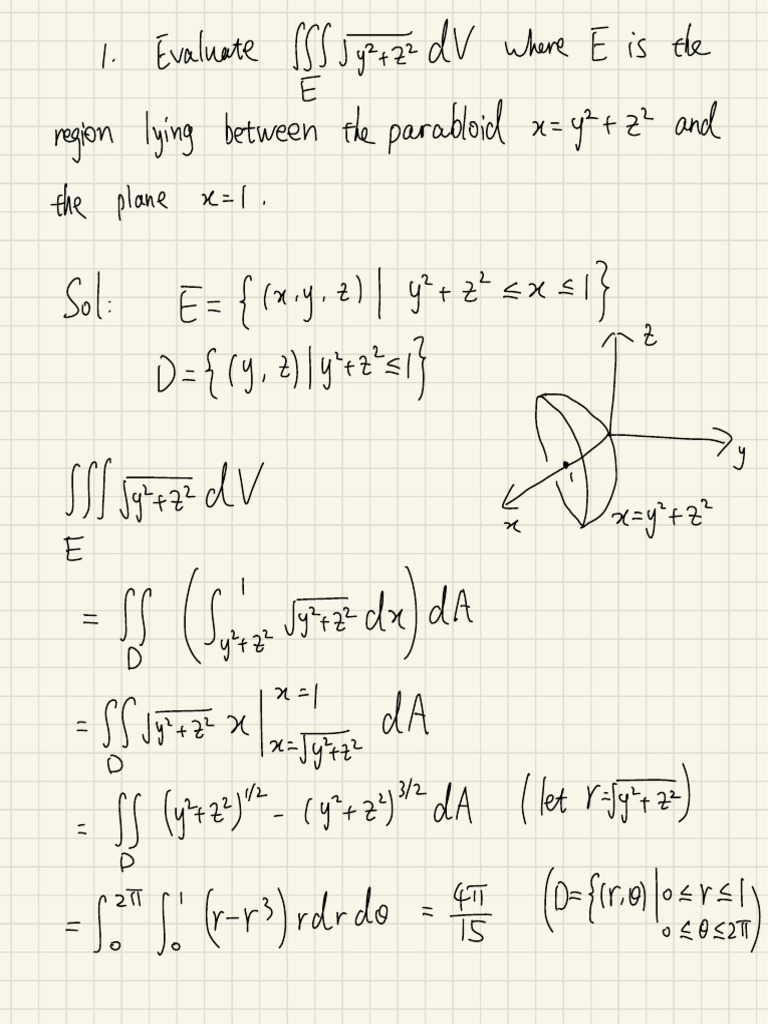 1. Evaluate ∭_E √(y²+z²) dV where E is the
region lying between the parabloid x=y²+z² and
the plane x=1.
Sol: E={(x,y,z)| y²+z² ≤x ≤1}
D={(y,z)|y²+z²≤1}
z
y
x
1
x=y²+z²
∭_E √(y²+z²) dV
= ∬_D (∫_{y²+z²}^{1} √(y²+z²) dx) dA
= ∬_D √(y²+z²) x |_{x=√(y²+z²)}^{x=1} dA
= ∬_D (y²+z²)^{1/2} - (y²+z²)^{3/2} dA (let r=√(y²+z²))
= ∫_0^{2π} ∫_0^1 (r-r³) r dr dθ = 4π/15 (D={(r,θ)|0≤r≤1
0≤θ≤2π)